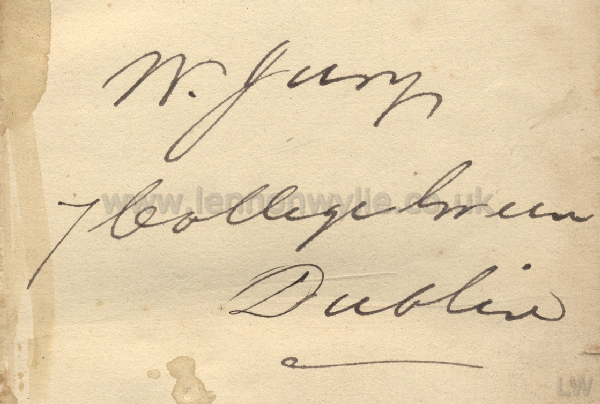 W. Jury
www.lennonwylie.co.uk
7 College Green
Dublin
LW